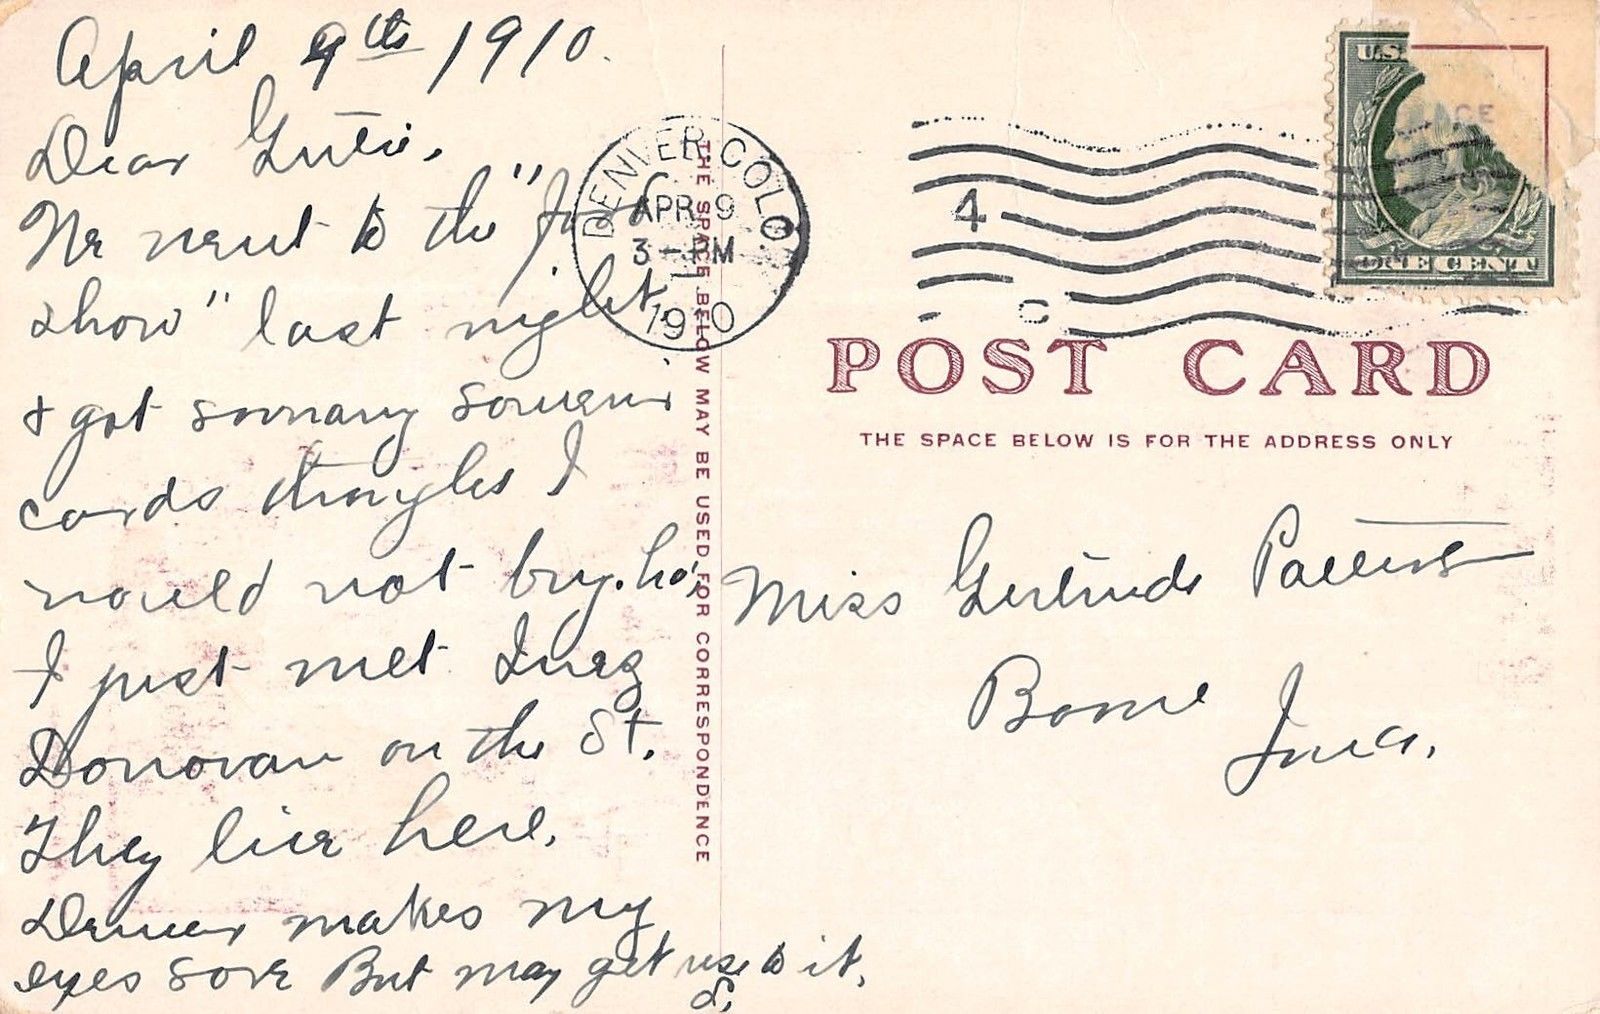 April 9th 1910.
Dear Gertie,
We went to the "
show" last night
& got so many souvenir
cards thought I
would not buy. ho,
I just met Inez
Donovan on the St.
They live here.
Denver makes my
eyes sore But may get use to it.
S.
DENVER COLO.
APR 9
3 - PM
1910
4
C
U.S.
ONE CENT
THE SPACE BELOW MAY BE USED FOR CORRESPONDENCE
POST CARD
THE SPACE BELOW IS FOR THE ADDRESS ONLY
Miss Gertrude
Boone
Iowa.